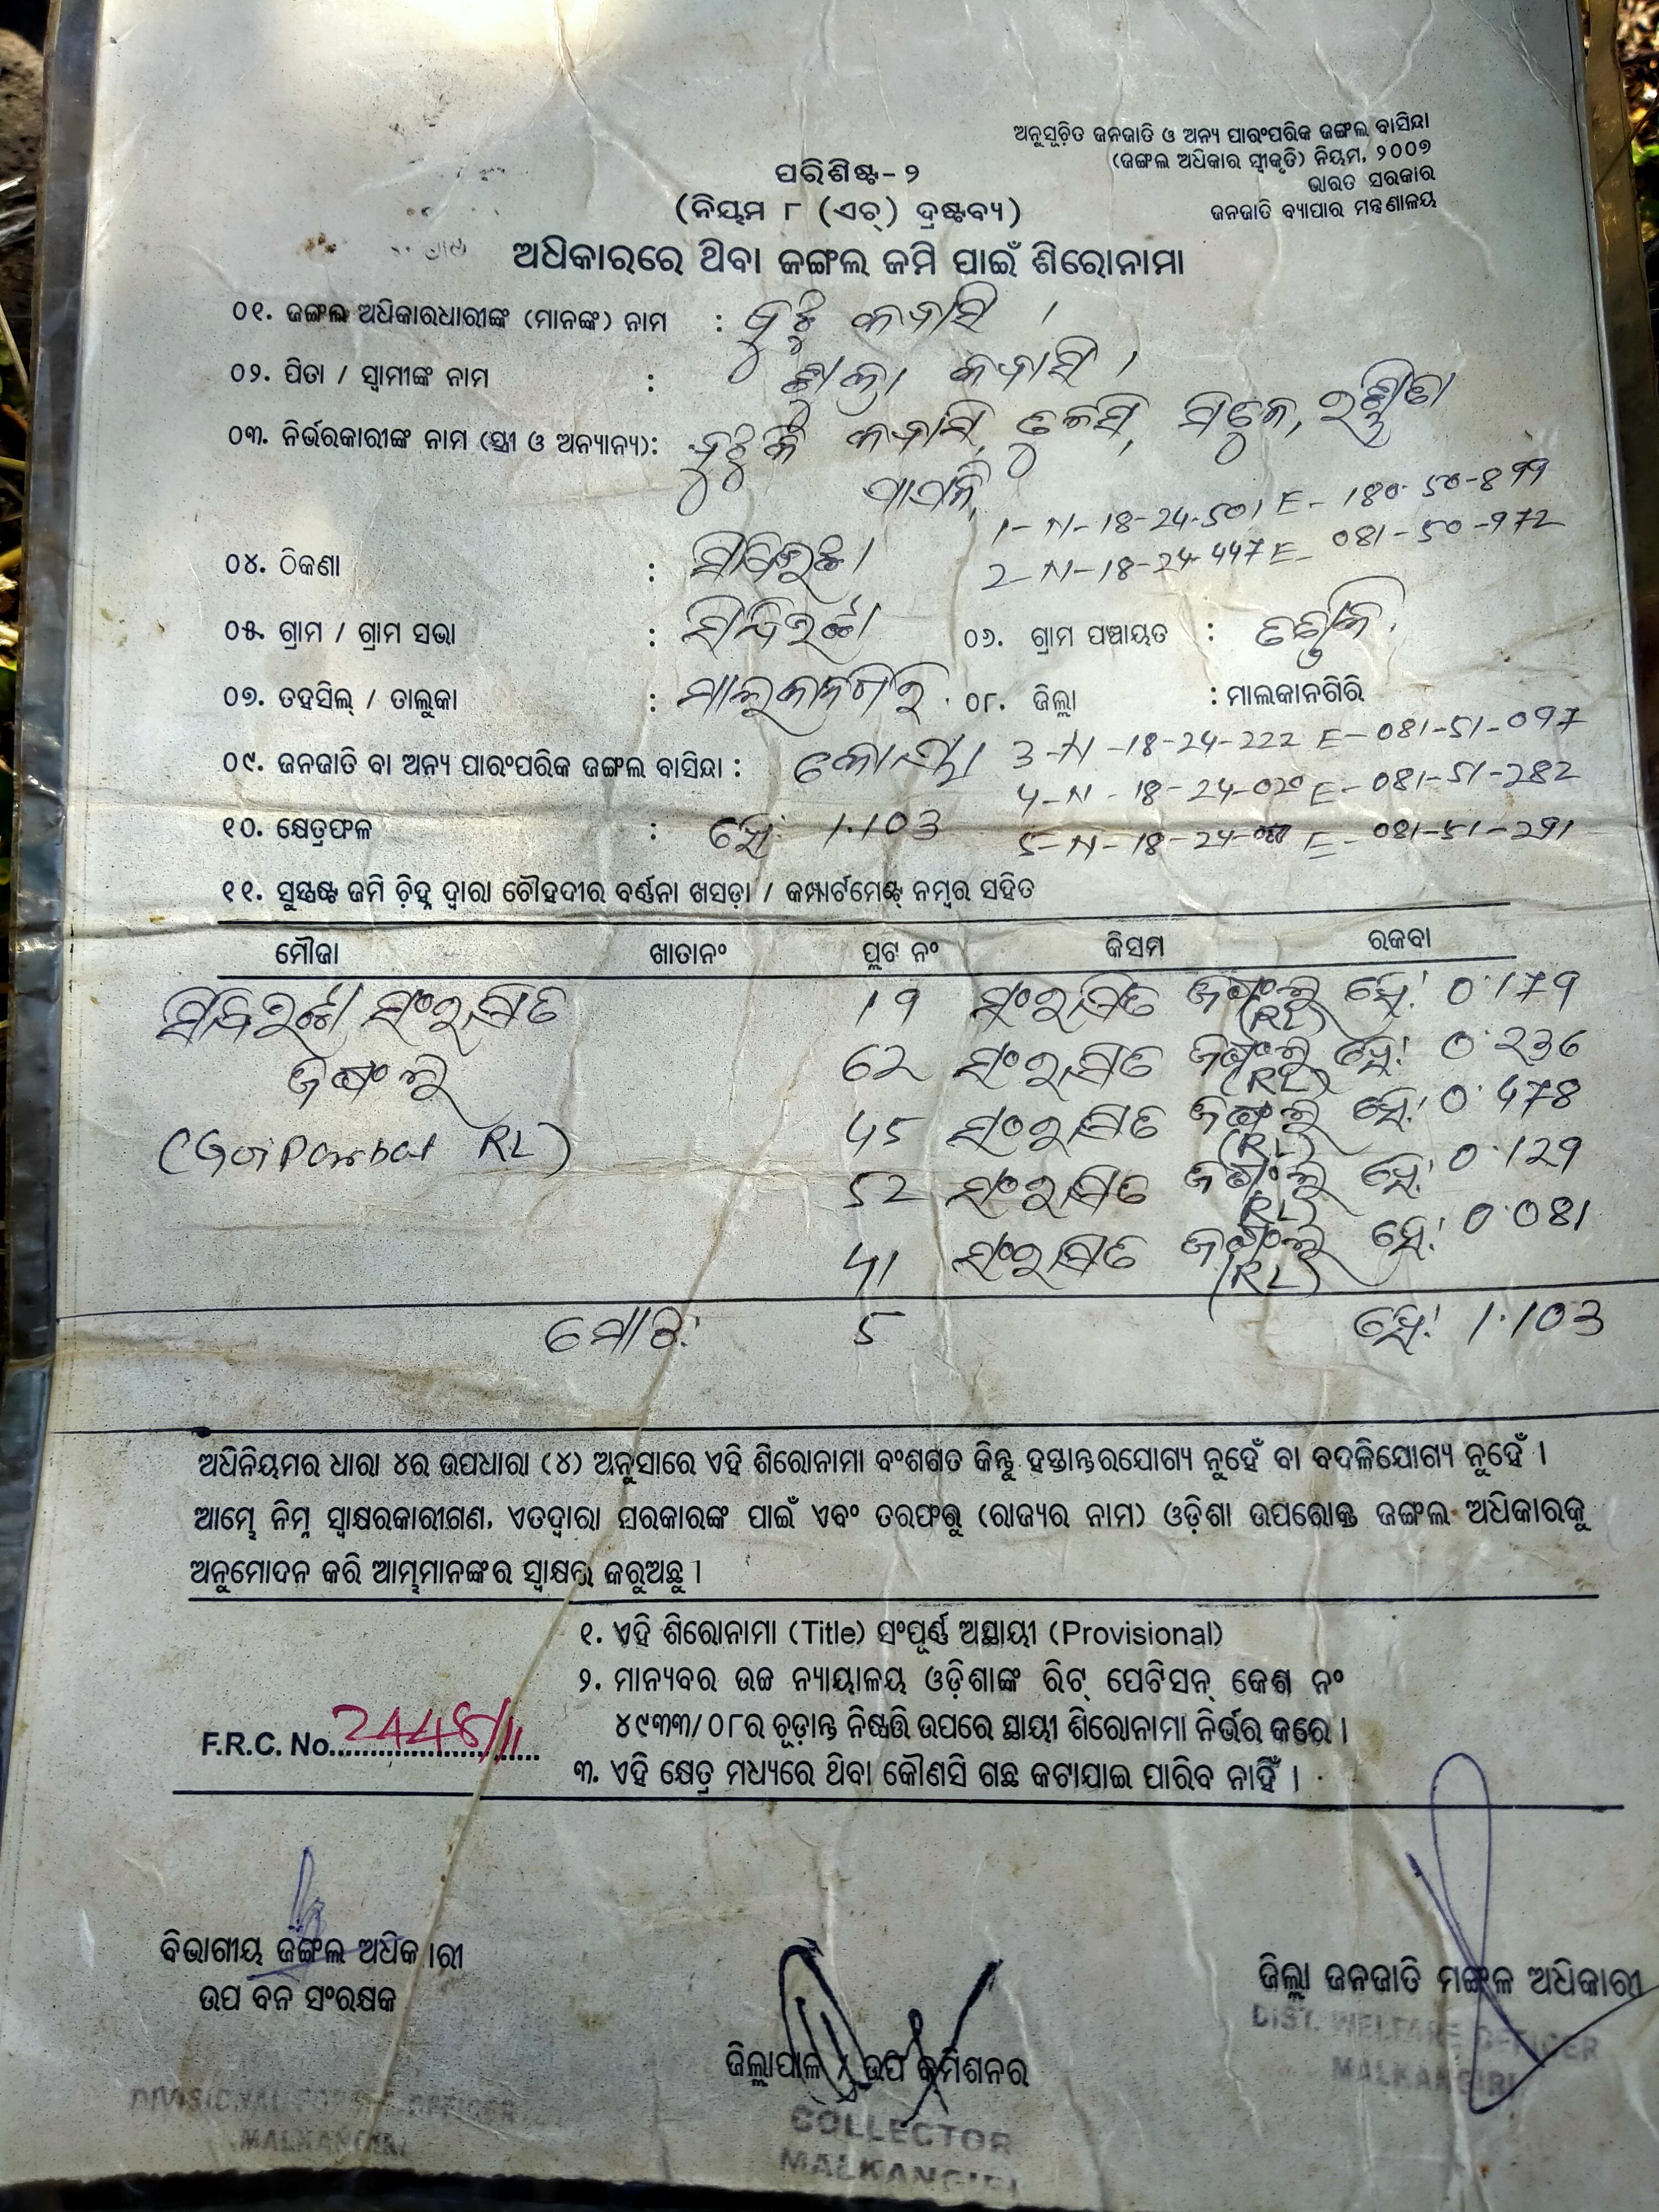 ଅନୁସୂଚିତ ଜନଜାତି ଓ ଅନ୍ୟ ପାରଂପରିକ ଜଙ୍ଗଲ ବାସିନ୍ଦା
(ଜଙ୍ଗଲ ଅଧିକାର ସ୍ଵୀକୃତି) ନିୟମ, ୨୦୦୭
ଭାରତ ସରକାର
ଜନଜାତି ବ୍ୟାପାର ମନ୍ତ୍ରଣାଳୟ
ପରିଶିଷ୍ଟ-୨
(ନିୟମ ୮ (ଏଚ୍) ଦ୍ରଷ୍ଟବ୍ୟ)
ଅଧିକାରରେ ଥିବା ଜଙ୍ଗଲ ଜମି ପାଇଁ ଶିରୋନାମା
୦୧. ଜଙ୍ଗଲ ଅଧିକାରଧାରୀଙ୍କ (ମାନଙ୍କ) ନାମ :
୦୨. ପିତା / ସ୍ଵାମୀଙ୍କ ନାମ :
୦୩. ନିର୍ଭରକାରୀଙ୍କ ନାମ (ସ୍ତ୍ରୀ ଓ ଅନ୍ୟାନ୍ୟ):
1-N-18-24-501 E- 180-50-899
୦୪. ଠିକଣା :
2-N-18-24-447 E- 081-50-972
୦୫. ଗ୍ରାମ / ଗ୍ରାମ ସଭା : ୦୬. ଗ୍ରାମ ପଞ୍ଚାୟତ :
୦୭. ତହସିଲ୍ / ତାଲୁକା : ମାଲକାନଗିରି ୦୮. ଜିଲ୍ଲା : ମାଲକାନଗିରି
୦୯. ଜନଜାତି ବା ଅନ୍ୟ ପାରଂପରିକ ଜଙ୍ଗଲ ବାସିନ୍ଦା : କୋୟା 3-N-18-24-222 E-081-51-097
4-N-18-24-020 E-081-51-282
୧୦. କ୍ଷେତ୍ରଫଳ : ହେ: 1.103 5-N-18-24- E-081-51-291
୧୧. ସୁସ୍ପଷ୍ଟ ଜମି ଚିହ୍ନ ଦ୍ଵାରା ଚୌହଦୀର ବର୍ଣ୍ଣନା ଖସଡ଼ା / କମ୍ପାର୍ଟମେଣ୍ଟ୍ ନମ୍ବର ସହିତ
ମୌଜା ଖାତାନଂ ପ୍ଲଟ ନଂ କିସମ ରକବା
ସଂରକ୍ଷିତ 19 ସଂରକ୍ଷିତ ଜଙ୍ଗଲ (RL) ହେ: 0.179
ଜଙ୍ଗଲ 62 ସଂରକ୍ଷିତ ଜଙ୍ଗଲ (RL) ହେ: 0.236
(GoiParbat RL) 45 ସଂରକ୍ଷିତ ଜଙ୍ଗଲ (RL) ହେ: 0.478
52 ସଂରକ୍ଷିତ ଜଙ୍ଗଲ (RL) ହେ: 0.129
41 ସଂରକ୍ଷିତ ଜଙ୍ଗଲ (RL) ହେ: 0.081
ମୋଟ: 5 ହେ: 1.103
ଅଧିନିୟମର ଧାରା ୪ର ଉପଧାରା (୪) ଅନୁସାରେ ଏହି ଶିରୋନାମା ବଂଶଗତ କିନ୍ତୁ ହସ୍ତାନ୍ତରଯୋଗ୍ୟ ନୁହେଁ ବା ବଦଳିଯୋଗ୍ୟ ନୁହେଁ ।
ଆମ୍ଭେ ନିମ୍ନ ସ୍ଵାକ୍ଷରକାରୀଗଣ, ଏତଦ୍ଵାରା ସରକାରଙ୍କ ପାଇଁ ଏବଂ ତରଫରୁ (ରାଜ୍ୟର ନାମ) ଓଡ଼ିଶା ଉପରୋକ୍ତ ଜଙ୍ଗଲ ଅଧିକାରକୁ
ଅନୁମୋଦନ କରି ଆମ୍ଭମାନଙ୍କର ସ୍ଵାକ୍ଷର କରୁଅଛୁ ।
୧. ଏହି ଶିରୋନାମା (Title) ସଂପୂର୍ଣ୍ଣ ଅସ୍ଥାୟୀ (Provisional)
୨. ମାନ୍ୟବର ଉଚ୍ଚ ନ୍ୟାୟାଳୟ ଓଡ଼ିଶାଙ୍କ ରିଟ୍ ପେଟିସନ୍ କେଶ ନଂ
୪୯୩୩/୦୮ର ଚୂଡ଼ାନ୍ତ ନିଷ୍ପତ୍ତି ଉପରେ ସ୍ଥାୟୀ ଶିରୋନାମା ନିର୍ଭର କରେ ।
F.R.C. No. 2448/11
୩. ଏହି କ୍ଷେତ୍ର ମଧ୍ୟରେ ଥିବା କୌଣସି ଗଛ କଟାଯାଇ ପାରିବ ନାହିଁ ।
ବିଭାଗୀୟ ଜଙ୍ଗଲ ଅଧିକାରୀ
ଉପ ବନ ସଂରକ୍ଷକ
DIVISIONAL FOREST OFFICER
MALKANGIRI
ଜିଲ୍ଲାପାଳ / ଉପ କମିଶନର
COLLECTOR
MALKANGIRI
ଜିଲ୍ଲା ଜନଜାତି ମଙ୍ଗଳ ଅଧିକାରୀ
DIST. WELFARE OFFICER
MALKANGIRI